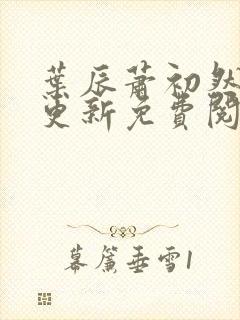 葉辰蕭初然
更新免費閱
幕簾垂雪1